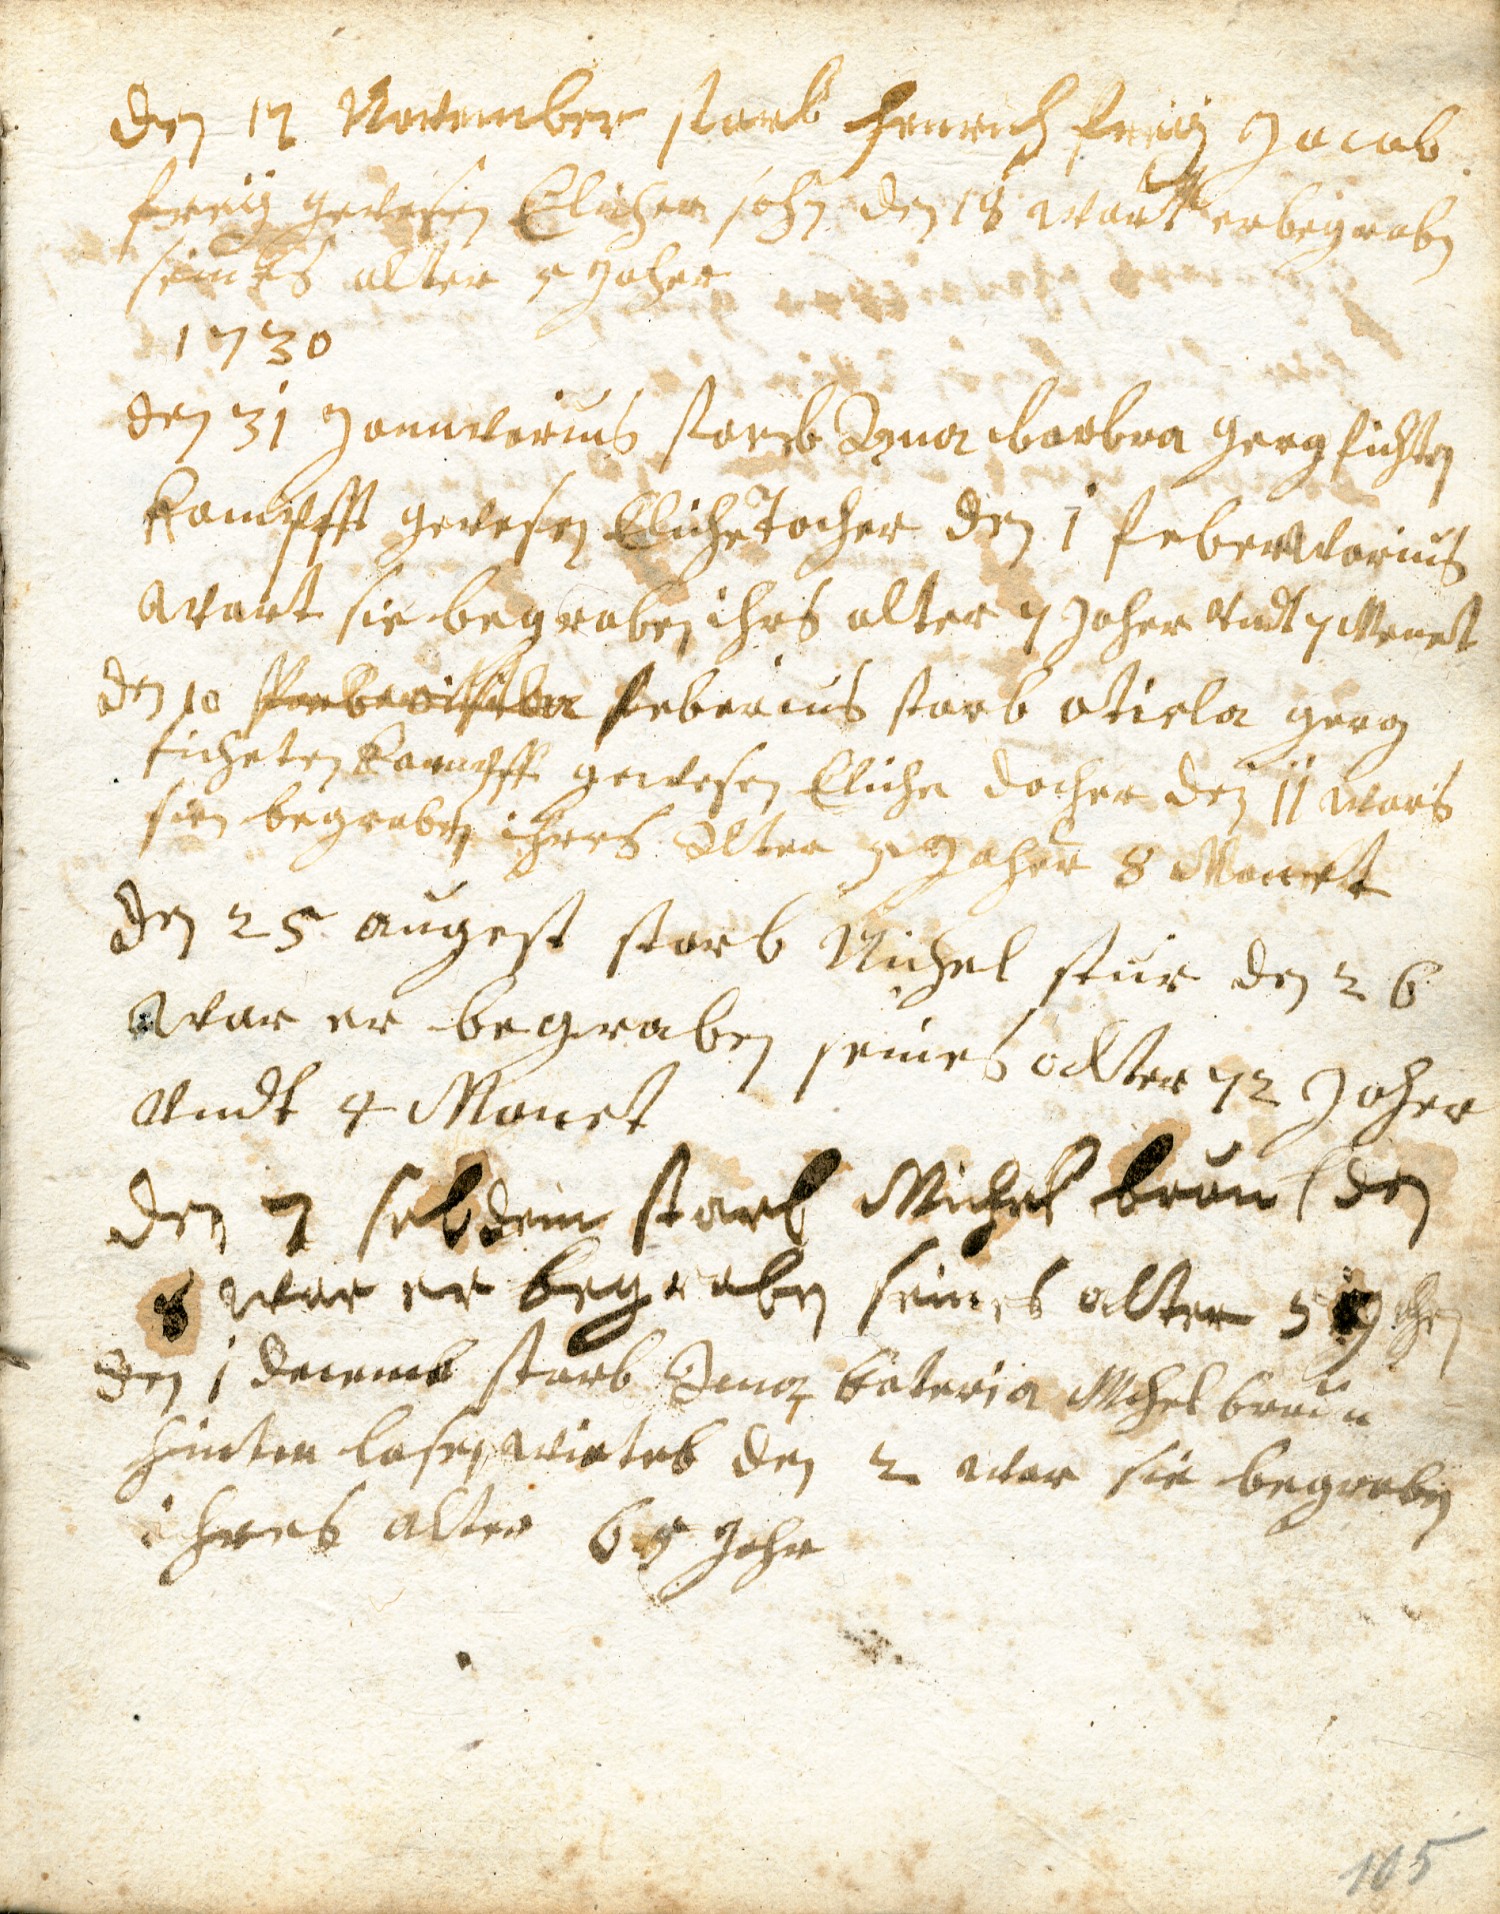 den 17 November starb Henrich freij Jacob
freij gewesen Elicher sohn den 18 wart er begraben
seines alter 5 Jaher
1730
den 31 Januvarius starb Anna barbra gerg
Kampfft gewesen Eliche Tocher den 1 feberwarius
wart sie begraben ihrs alter 7 Jaher vndt 7 Monet
den 10 feberius starb otiela gerg
Kampfft gewesen Eliche docher den 11 wars
sien begraben ihres alter 5 Jaher 8 Monet
den 25 augest starb Michel stur den 26
war er begraben seines alter 72 Jaher
vndt 4 Monet
den 7 sebdem starb Michel braun den
8 war er begraben seines alter
den 1 decemb starb Anna Kateria Mchel braun
hinter lasen wieteb den 2 war sie begraben
ihres alter 65 Jahr
105